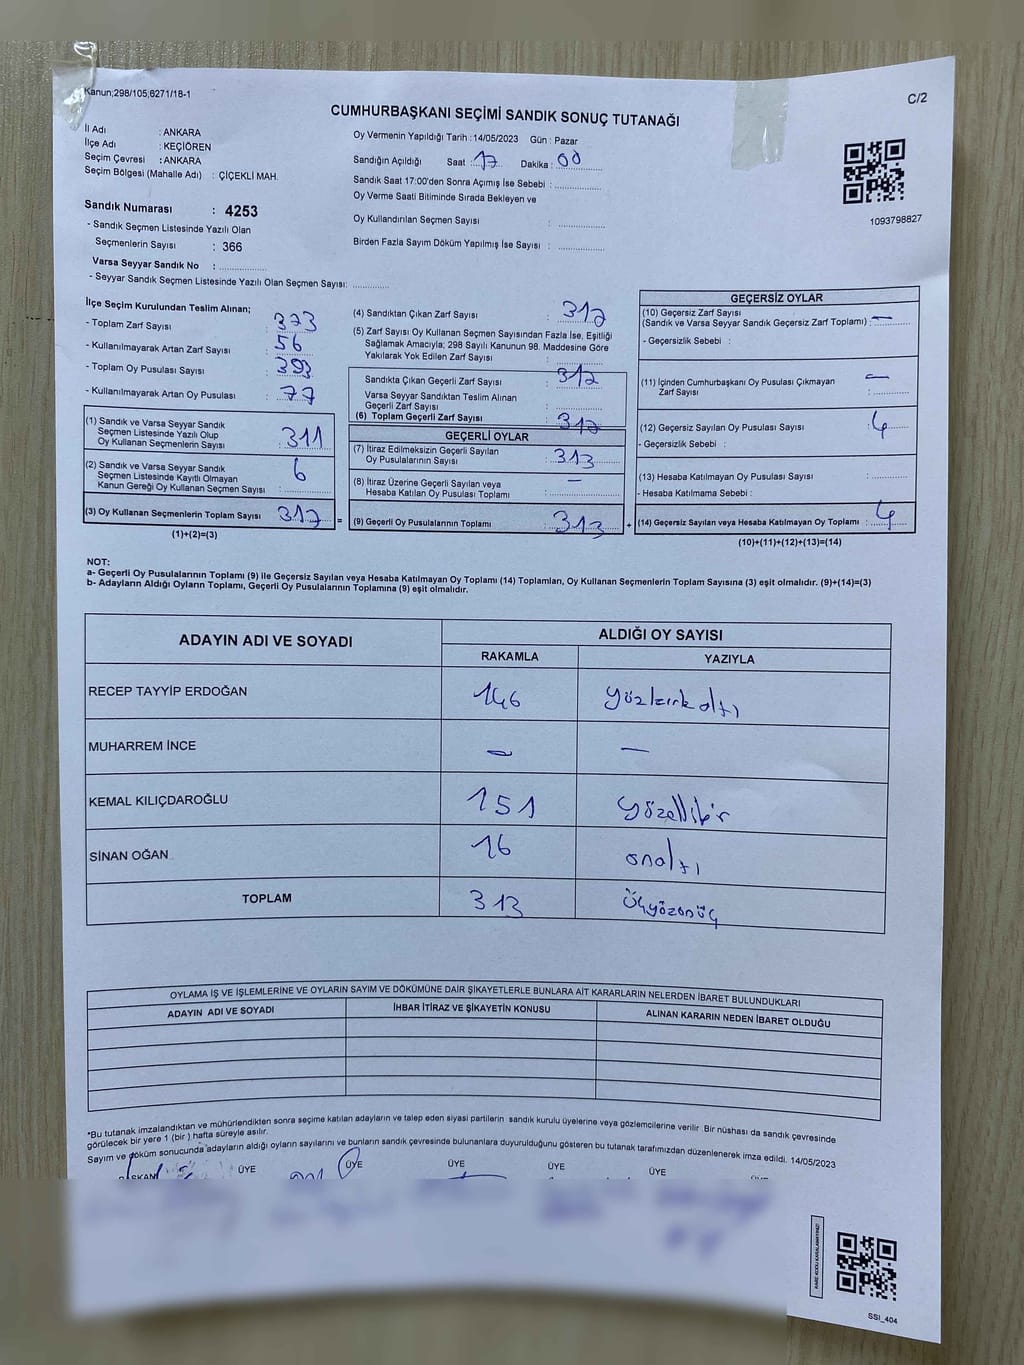 Kanun;298/105,6271/18-1
C/2
CUMHURBAŞKANI SEÇİMİ SANDIK SONUÇ TUTANAĞI
İl Adı : ANKARA
İlçe Adı : KEÇİÖREN
Seçim Çevresi : ANKARA
Seçim Bölgesi (Mahalle Adı) : ÇİÇEKLİ MAH.
Sandık Numarası : 4253
- Sandık Seçmen Listesinde Yazılı Olan
Seçmenlerin Sayısı : 366
Varsa Seyyar Sandık No : ..................
- Seyyar Sandık Seçmen Listesinde Yazılı Olan Seçmen Sayısı: ............
Oy Vermenin Yapıldığı Tarih : 14/05/2023 Gün : Pazar
Sandığın Açıldığı Saat : 17 Dakika : 00
Sandık Saat 17:00'den Sonra Açımış İse Sebebi : ...............
Oy Verme Saati Bitiminde Sırada Bekleyen ve
Oy Kullandırılan Seçmen Sayısı : ...............
Birden Fazla Sayım Döküm Yapılmış İse Sayısı : ...............
1093798827
İlçe Seçim Kurulundan Teslim Alınan;
- Toplam Zarf Sayısı : 373
- Kullanılmayarak Artan Zarf Sayısı : 56
- Toplam Oy Pusulası Sayısı : 393
- Kullanılmayarak Artan Oy Pusulası : 77
(1) Sandık ve Varsa Seyyar Sandık
Seçmen Listesinde Yazılı Olup
Oy Kullanan Seçmenlerin Sayısı : 311
(2) Sandık ve Varsa Seyyar Sandık
Seçmen Listesinde Kayıtlı Olmayan
Kanun Gereği Oy Kullanan Seçmen Sayısı : 6
(3) Oy Kullanan Seçmenlerin Toplam Sayısı : 317
(1)+(2)=(3)
(4) Sandıktan Çıkan Zarf Sayısı : 317
(5) Zarf Sayısı Oy Kullanan Seçmen Sayısından Fazla İse, Eşitliği
Sağlamak Amacıyla; 298 Sayılı Kanunun 98. Maddesine Göre
Yakılarak Yok Edilen Zarf Sayısı : ...............
Sandıkta Çıkan Geçerli Zarf Sayısı : 317
Varsa Seyyar Sandıktan Teslim Alınan
Geçerli Zarf Sayısı : ...............
(6) Toplam Geçerli Zarf Sayısı : 317
GEÇERLİ OYLAR
(7) İtiraz Edilmeksizin Geçerli Sayılan
Oy Pusulalarının Sayısı : 313
(8) İtiraz Üzerine Geçerli Sayılan veya
Hesaba Katılan Oy Pusulası Toplamı : —
= (9) Geçerli Oy Pusulalarının Toplamı : 313 +
GEÇERSİZ OYLAR
(10) Geçersiz Zarf Sayısı
(Sandık ve Varsa Seyyar Sandık Geçersiz Zarf Toplamı) : —
- Geçersizlik Sebebi :
(11) İçinden Cumhurbaşkanı Oy Pusulası Çıkmayan
Zarf Sayısı : —
(12) Geçersiz Sayılan Oy Pusulası Sayısı : 4
- Geçersizlik Sebebi :
(13) Hesaba Katılmayan Oy Pusulası Sayısı : ............
- Hesaba Katılmama Sebebi :
(14) Geçersiz Sayılan veya Hesaba Katılmayan Oy Toplamı : 4
(10)+(11)+(12)+(13)=(14)
NOT:
a- Geçerli Oy Pusulalarının Toplamı (9) ile Geçersiz Sayılan veya Hesaba Katılmayan Oy Toplamı (14) Toplamları, Oy Kullanan Seçmenlerin Toplam Sayısına (3) eşit olmalıdır. (9)+(14)=(3)
b- Adayların Aldığı Oyların Toplamı, Geçerli Oy Pusulalarının Toplamına (9) eşit olmalıdır.
ADAYIN ADI VE SOYADI ALDIĞI OY SAYISI
RAKAMLA YAZIYLA
RECEP TAYYİP ERDOĞAN 146 yüzkırkaltı
MUHARREM İNCE — —
KEMAL KILIÇDAROĞLU 151 yüzellibir
SİNAN OĞAN 16 onaltı
TOPLAM 313 üçyüzonüç
OYLAMA İŞ VE İŞLEMLERİNE VE OYLARIN SAYIM VE DÖKÜMÜNE DAİR ŞİKAYETLERLE BUNLARA AİT KARARLARIN NELERDEN İBARET BULUNDUKLARI
ADAYIN ADI VE SOYADI İHBAR İTİRAZ VE ŞİKAYETİN KONUSU ALINAN KARARIN NEDEN İBARET OLDUĞU
*Bu tutanak imzalandıktan ve mühürlendikten sonra seçime katılan adayların ve talep eden siyasi partilerin sandık kurulu üyelerine veya gözlemcilerine verilir. Bir nüshası da sandık çevresinde
görülecek bir yere 1 (bir) hafta süreyle asılır.
Sayım ve döküm sonucunda adayların aldığı oyların sayılarını ve bunların sandık çevresinde bulunanlara duyurulduğunu gösteren bu tutanak tarafımızdan düzenlenerek imza edildi. 14/05/2023
ÜYE ÜYE ÜYE ÜYE ÜYE
SSİ_404